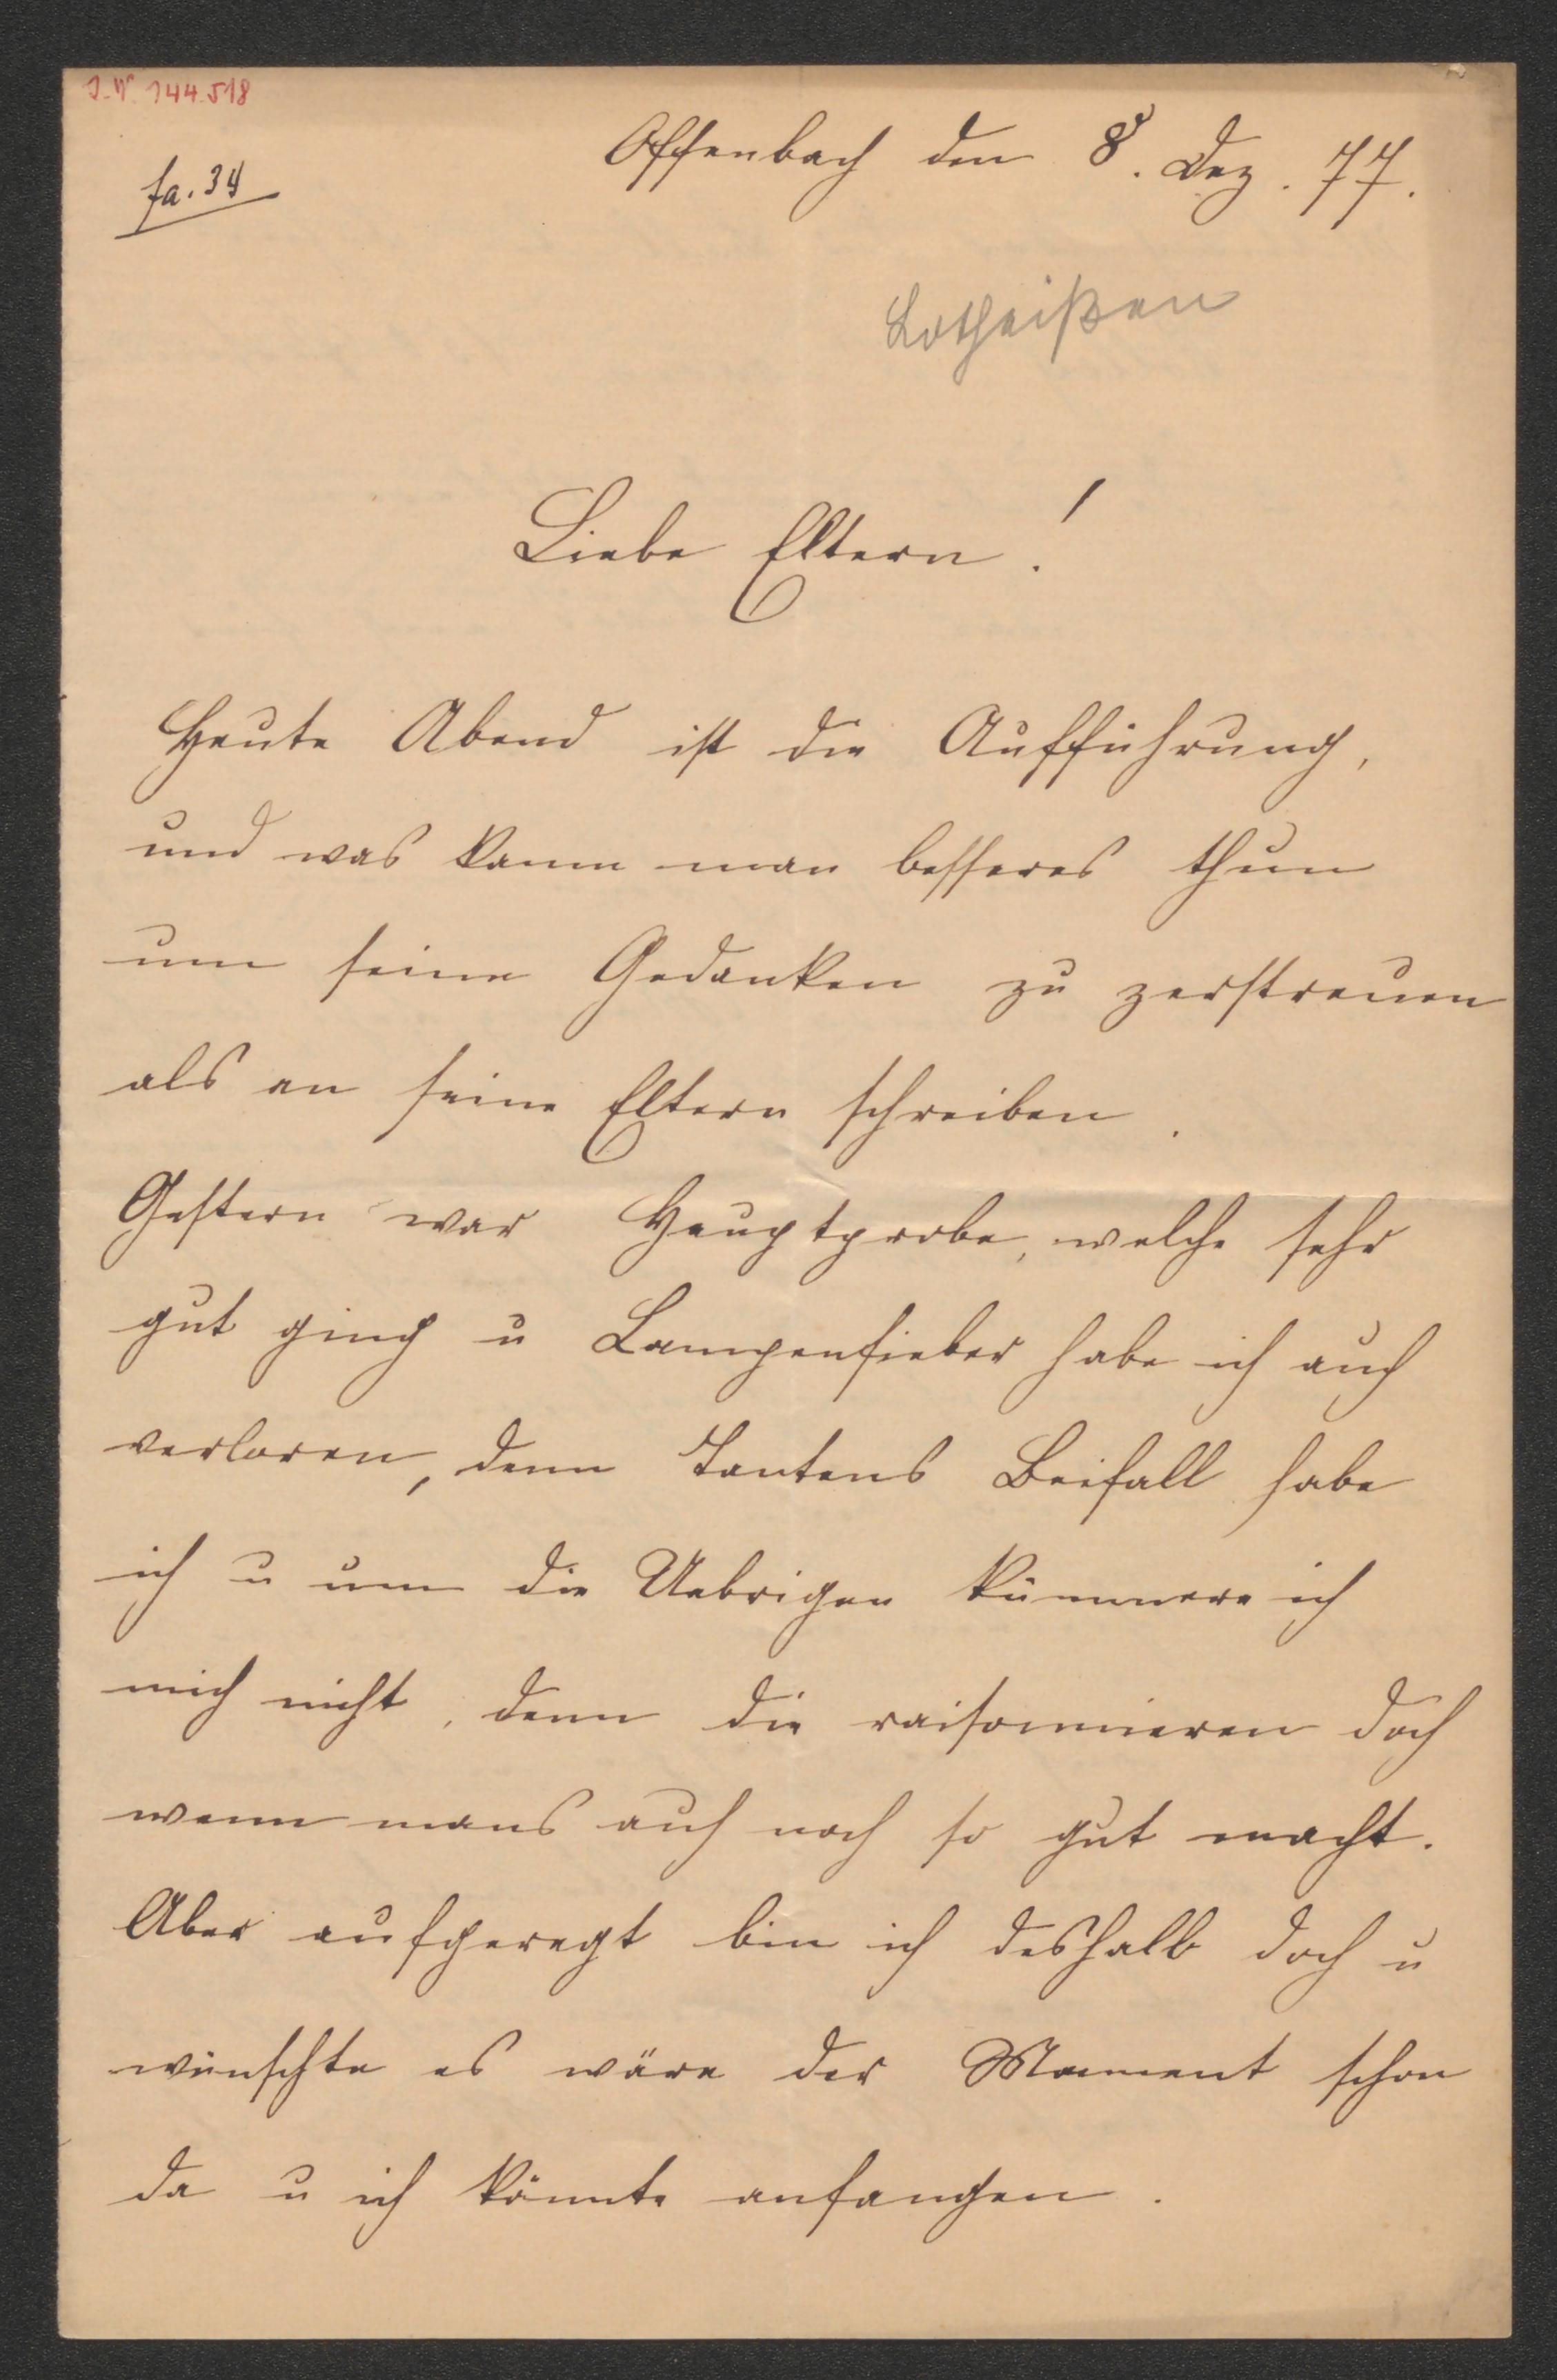 J.N. 144.518
Offenbach den 8. Dez. 77.
fa. 34
Lotheißen
Liebe Eltern!
Heute Abend ist die Aufführung,
und was kann man besseres thun
um seine Gedanken zu zerstreuen
als an seine Eltern schreiben.
Gestern war Hauptprobe, welche sehr
gut ging u Lampenfieber habe ich auch
verloren, denn Tantens Beifall habe
ich u um die Uebrigen kümmere ich
mich nicht, denn die raisonnieren doch
wenn mans auch noch so gut macht.
Aber aufgeregt bin ich deshalb doch u
wünschte es wäre der Moment schon
da u ich könnte anfangen.